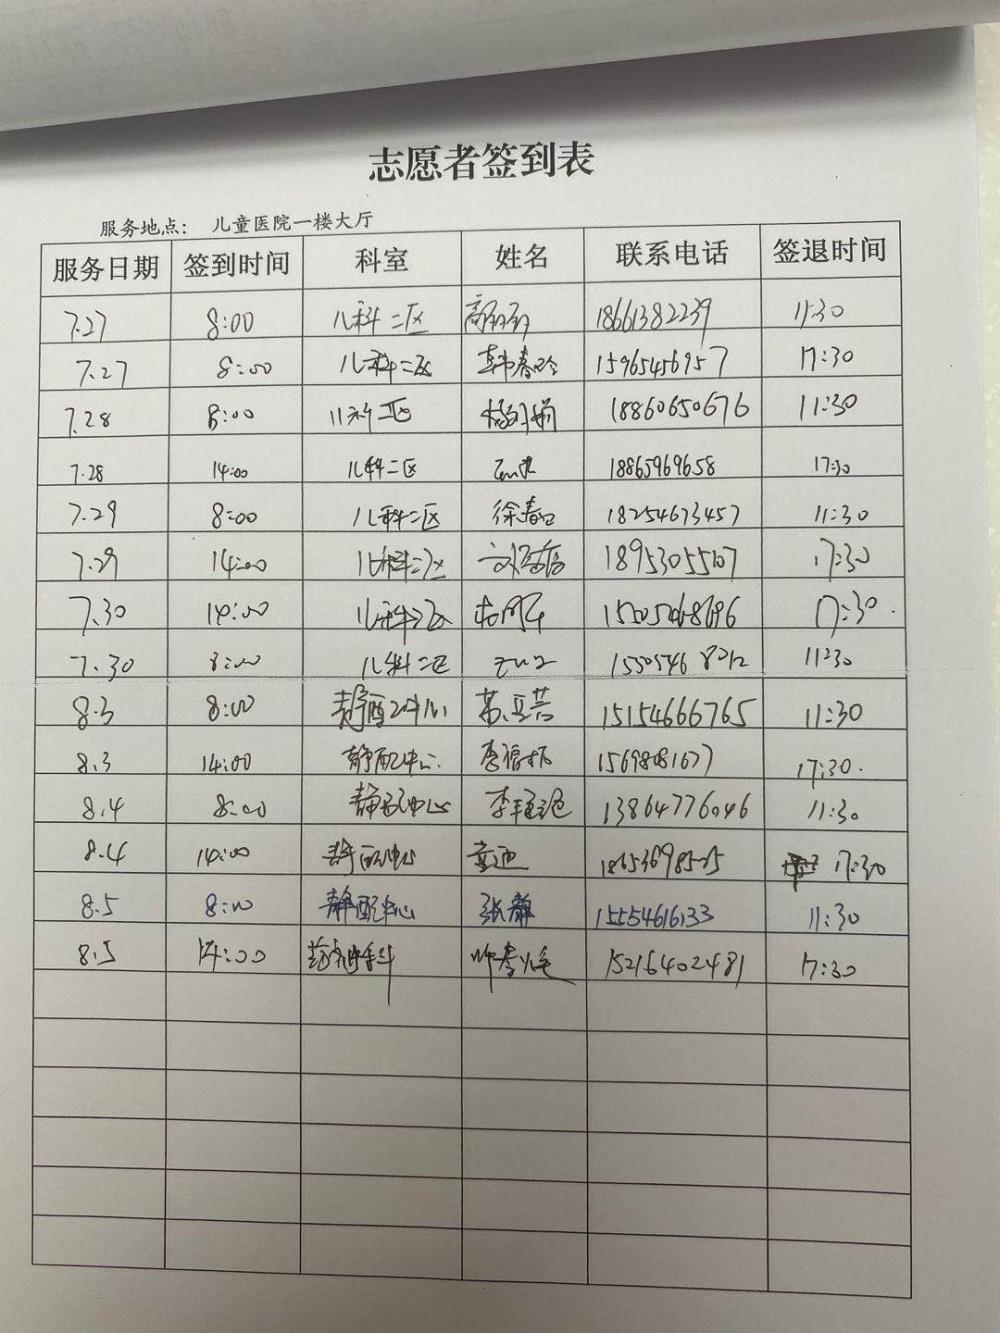 志愿者签到表
服务地点： 儿童医院一楼大厅
服务日期 签到时间 科室 姓名 联系电话 签退时间
7.27 8:00 儿科二区 18661382239 11:30
7.27 8:00 儿科二区 韩春玲 15965456957 17:30
7.28 8:00 儿科二区 18860650676 11:30
7.28 14:00 儿科二区 18865969658 17:30
7.29 8:00 儿科二区 18254673457 11:30
7.29 14:00 儿科二区 17:30
7.30 14:00 儿科二区 17:30.
7.30 8:00 儿科二区 11:30
8.3 8:00 静配中心 15154666765 11:30
8.3 14:00 静配中心. 15698081677 17:30.
8.4 8:00 静配中心 13864776046 11:30
8.4 14:00 静配中心 童迪 17:30
8.5 8:00 静配中心 张静 15554616133 11:30
8.5 14:00 15216402481 17:30